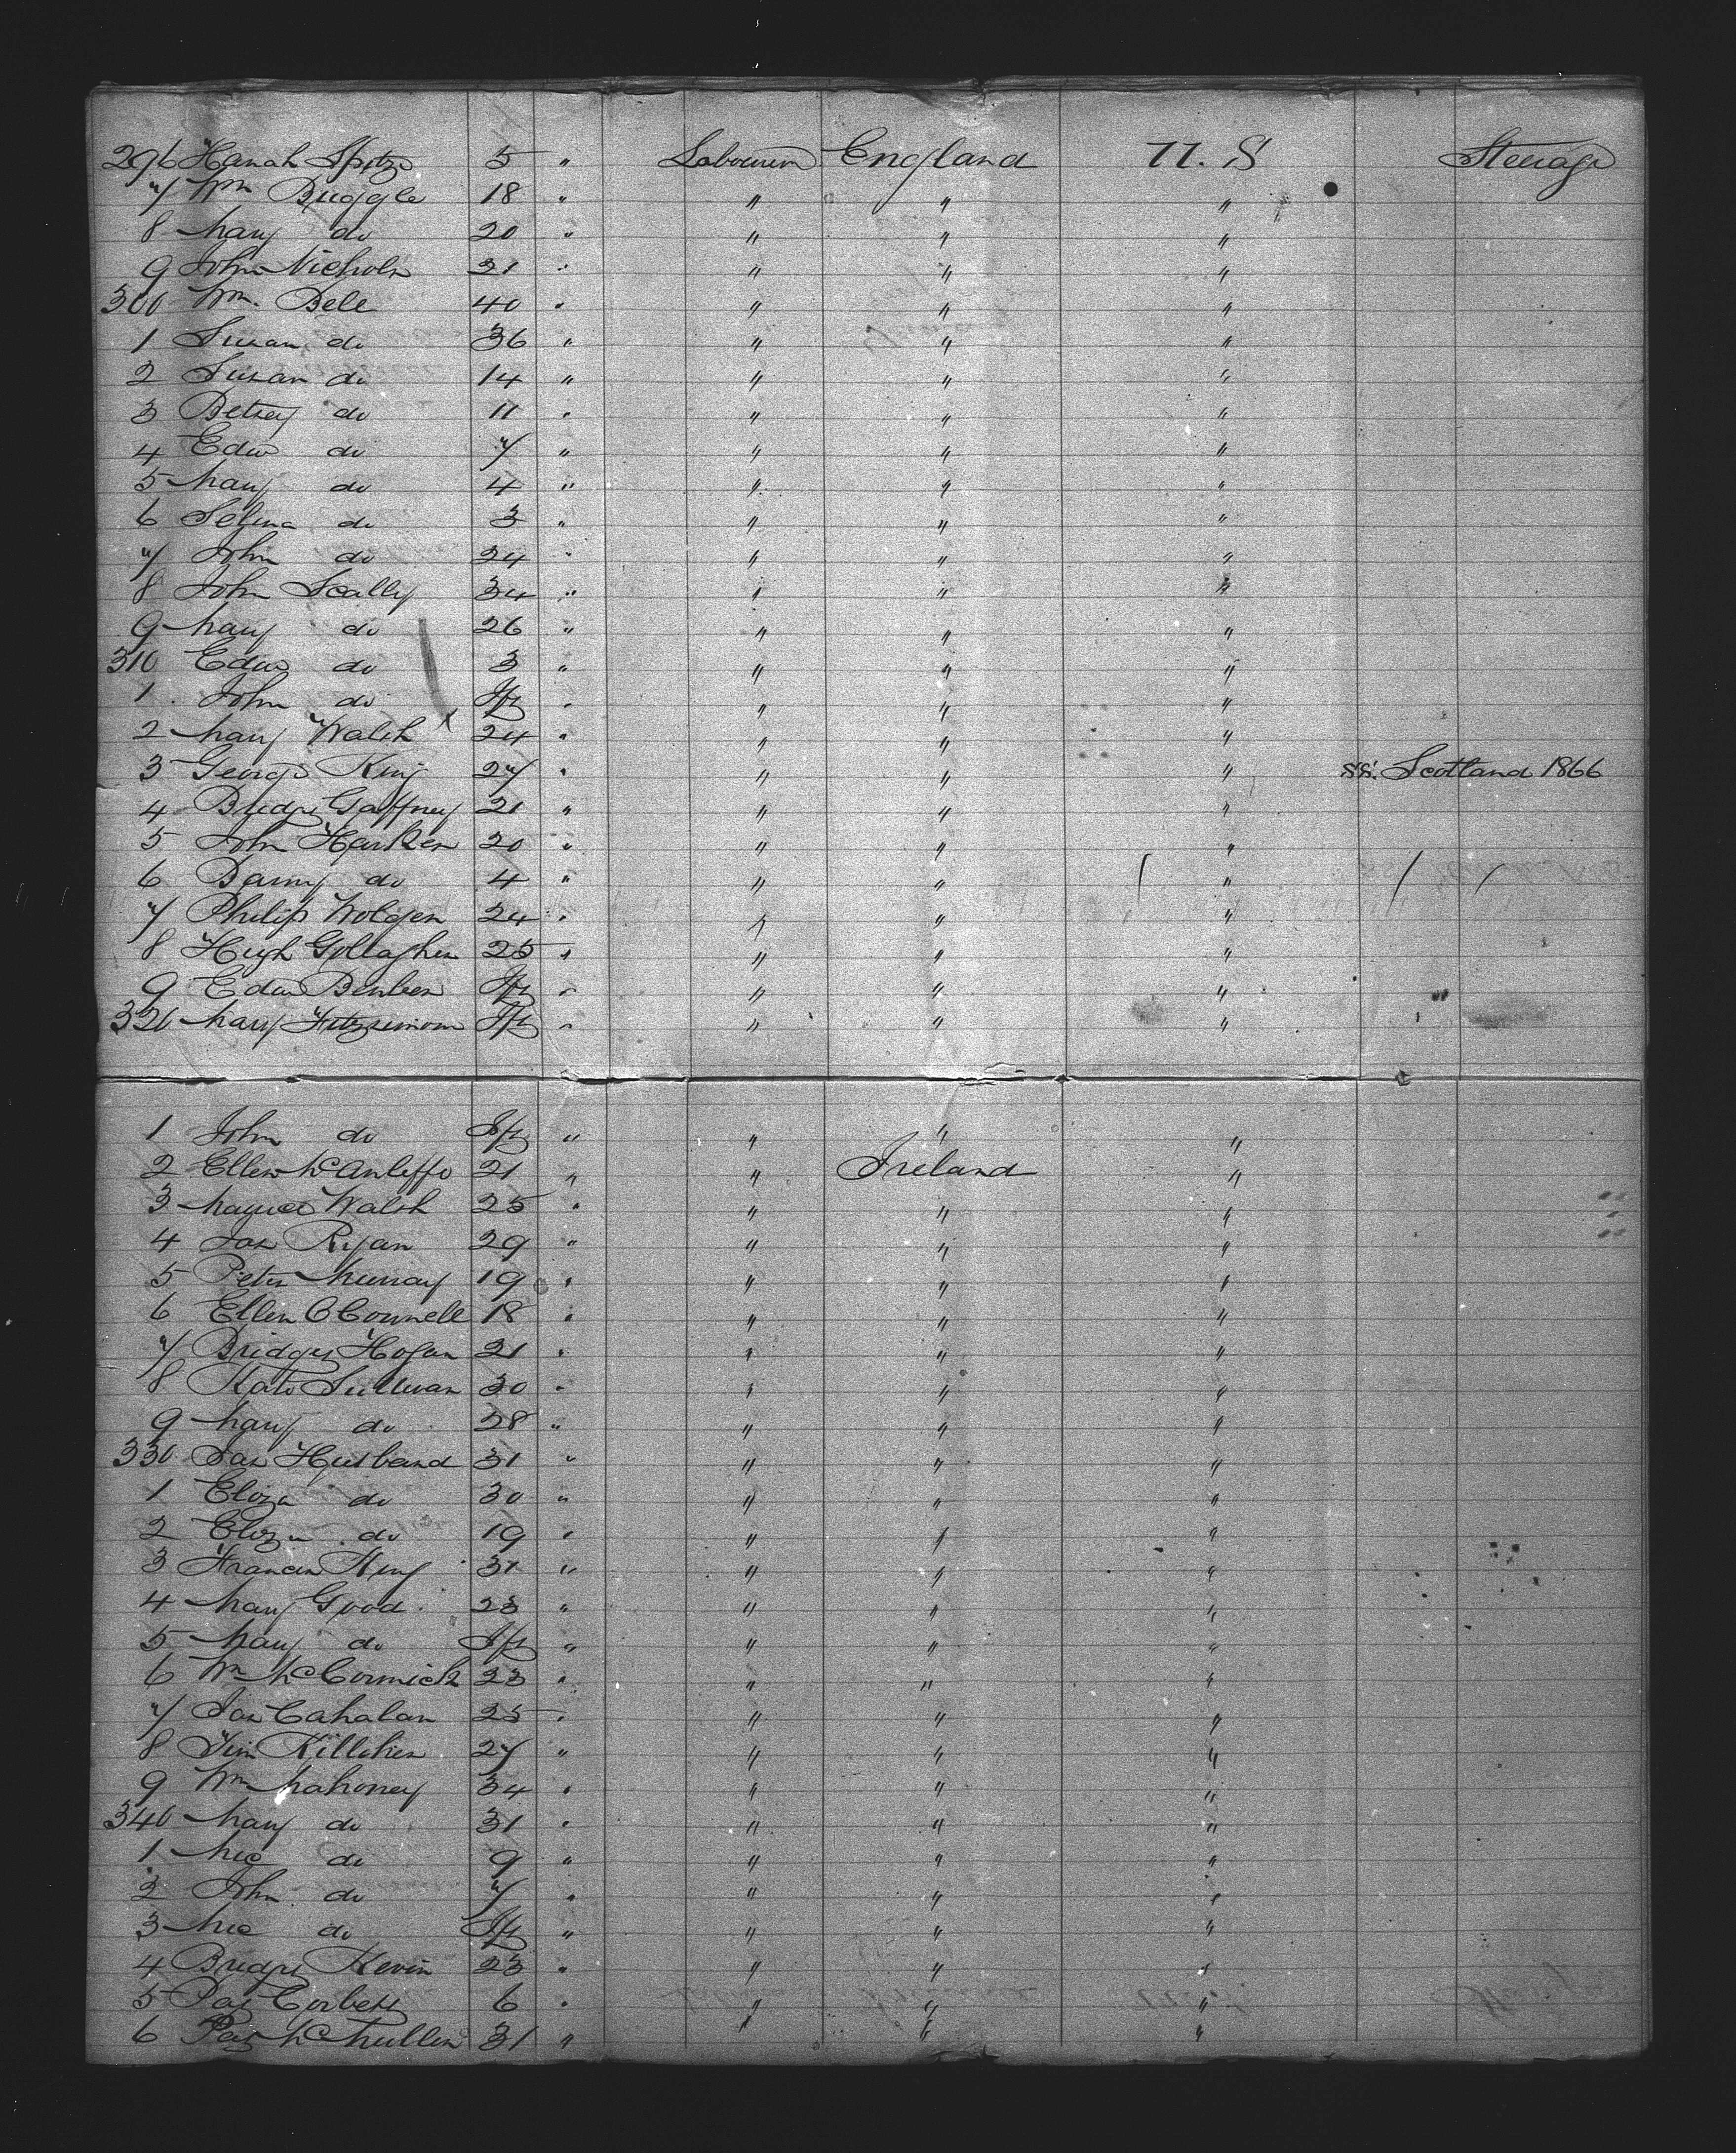 296 Hanah Spitz 5 " Labourer England U. S Steerage
7 Wm Bruggle 18 " " " "
8 Mary do 20 " " " "
9 John Nichols 21 " " " "
300 Wm. Bell 40 " " " "
1 Susan do 36 " " " "
2 Susan do 14 " " " "
3 Betsey do 11 " " " "
4 Edw do 7 " " " "
5 Mary do 4 " " " "
6 Selina do 3 " " " "
7 John do 24 " " " "
8 John Scally 34 " " " "
9 Mary do 26 " " " "
310 Edw do 3 " " " "
1 John do Inft " " " "
2 Mary Walsh 24 " " " "
3 George King 27 " " " " SS. Scotland 1866
4 Bridgt Gaffney 21 " " " "
5 John Harken 20 " " " "
6 Barny do 4 " " " "
7 Philip Wolgen 24 " " " "
8 Hugh Gollagher 25 " " " "
9 Edw Benben Inft " " " "
320 Mary Fitzsimom Inft " " " "
1 John do Inft " " " "
2 Ellen McAuliffe 21 " " Ireland "
3 Walsh 25 " " " "
4 Jas Ryan 29 " " " "
5 Peter Murray 19 " " " "
6 Ellen OConnell 18 " " " "
7 Bridget Hogan 21 " " " "
8 Kate Sullivan 30 " " " "
9 Mary do 28 " " " "
330 Jas Husband 31 " " " "
1 Eliza do 30 " " " "
2 Eliza do 19 " " " "
3 Francis King 31 " " " "
4 Mary Good 23 " " " "
5 Mary do Inft " " " "
6 Wm McCormick 23 " " " "
7 Jas Cahalan 25 " " " "
8 Tim Killohen 27 " " " "
9 Wm Mahoney 34 " " " "
340 Mary do 31 " " " "
1 Mic do 9 " " " "
2 John do 7 " " " "
3 Mic do Inft " " " "
4 Bridgt Kevin 23 " " " "
5 Pat Corbett 6 " " " "
6 Pat McMullen 31 " " " "